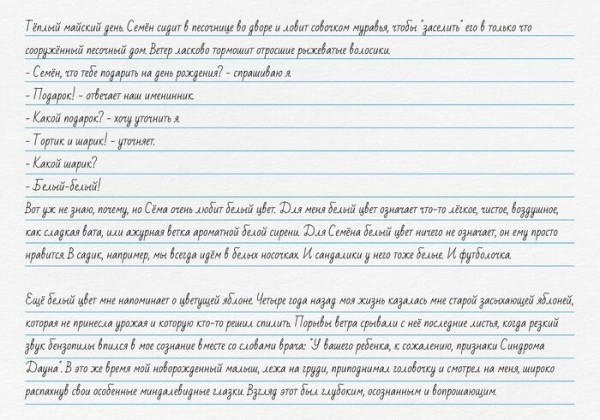 Тёплый майский день. Семён сидит в песочнице во дворе и ловит совочком муравья, чтобы "заселить" его в только что
сооружённый песочный дом. Ветер ласково тормошит отросшие рыжеватые волосики.
- Семён, что тебе подарить на день рождения? - спрашиваю я.
- Подарок! - отвечает наш именинник.
- Какой подарок? - хочу уточнить я.
- Тортик и шарик! - уточняет.
- Какой шарик?
- Белый-белый!
Вот уж не знаю, почему, но Сёма очень любит белый цвет. Для меня белый цвет означает что-то лёгкое, чистое, воздушное,
как сладкая вата, или ажурная ветка ароматной белой сирени. Для Семёна белый цвет ничего не означает, он ему просто
нравится. В садик, например, мы всегда идём в белых носочках. И сандалики у него тоже белые. И футболочка.
Ещё белый цвет мне напоминает о цветущей яблоне. Четыре года назад моя жизнь казалась мне старой засыхающей яблоней,
которая не принесла урожая и которую кто-то решил спилить. Порывы ветра срывали с неё последние листья, когда резкий
звук бензопилы впился в мое сознание вместе со словами врача: "У вашего ребенка, к сожалению, признаки Синдрома
Дауна". В это же время мой новорожденный малыш, лежа на груди, приподнимал головочку и смотрел на меня, широко
распахнув свои особенные миндалевидные глазки. Взгляд этот был глубоким, осознанным и вопрошающим.